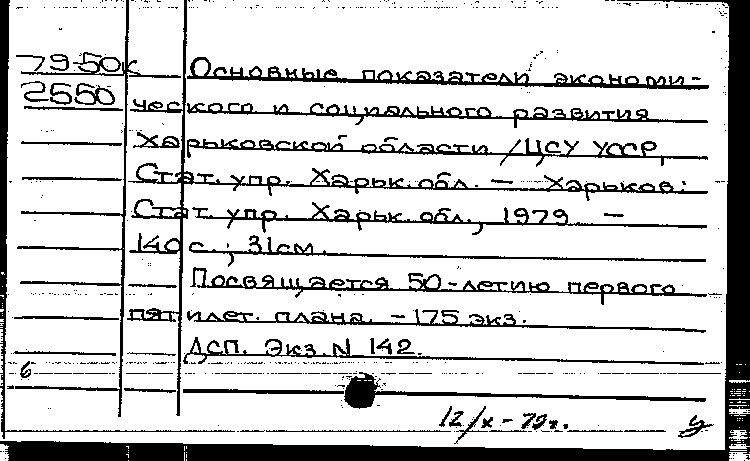 79-50к Основные показатели экономи-
2550 ческого и социального развития
Харьковской области / ЦСУ УССР,
Стат. упр. Харьк. обл. — Харьков:
Стат. упр. Харьк. обл., 1979. —
140 с.; 31см.
Посвящается 50-летию первого
пятилет. плана. - 175 экз.
ДСП. Экз. N 142.
6
12/x - 79г.